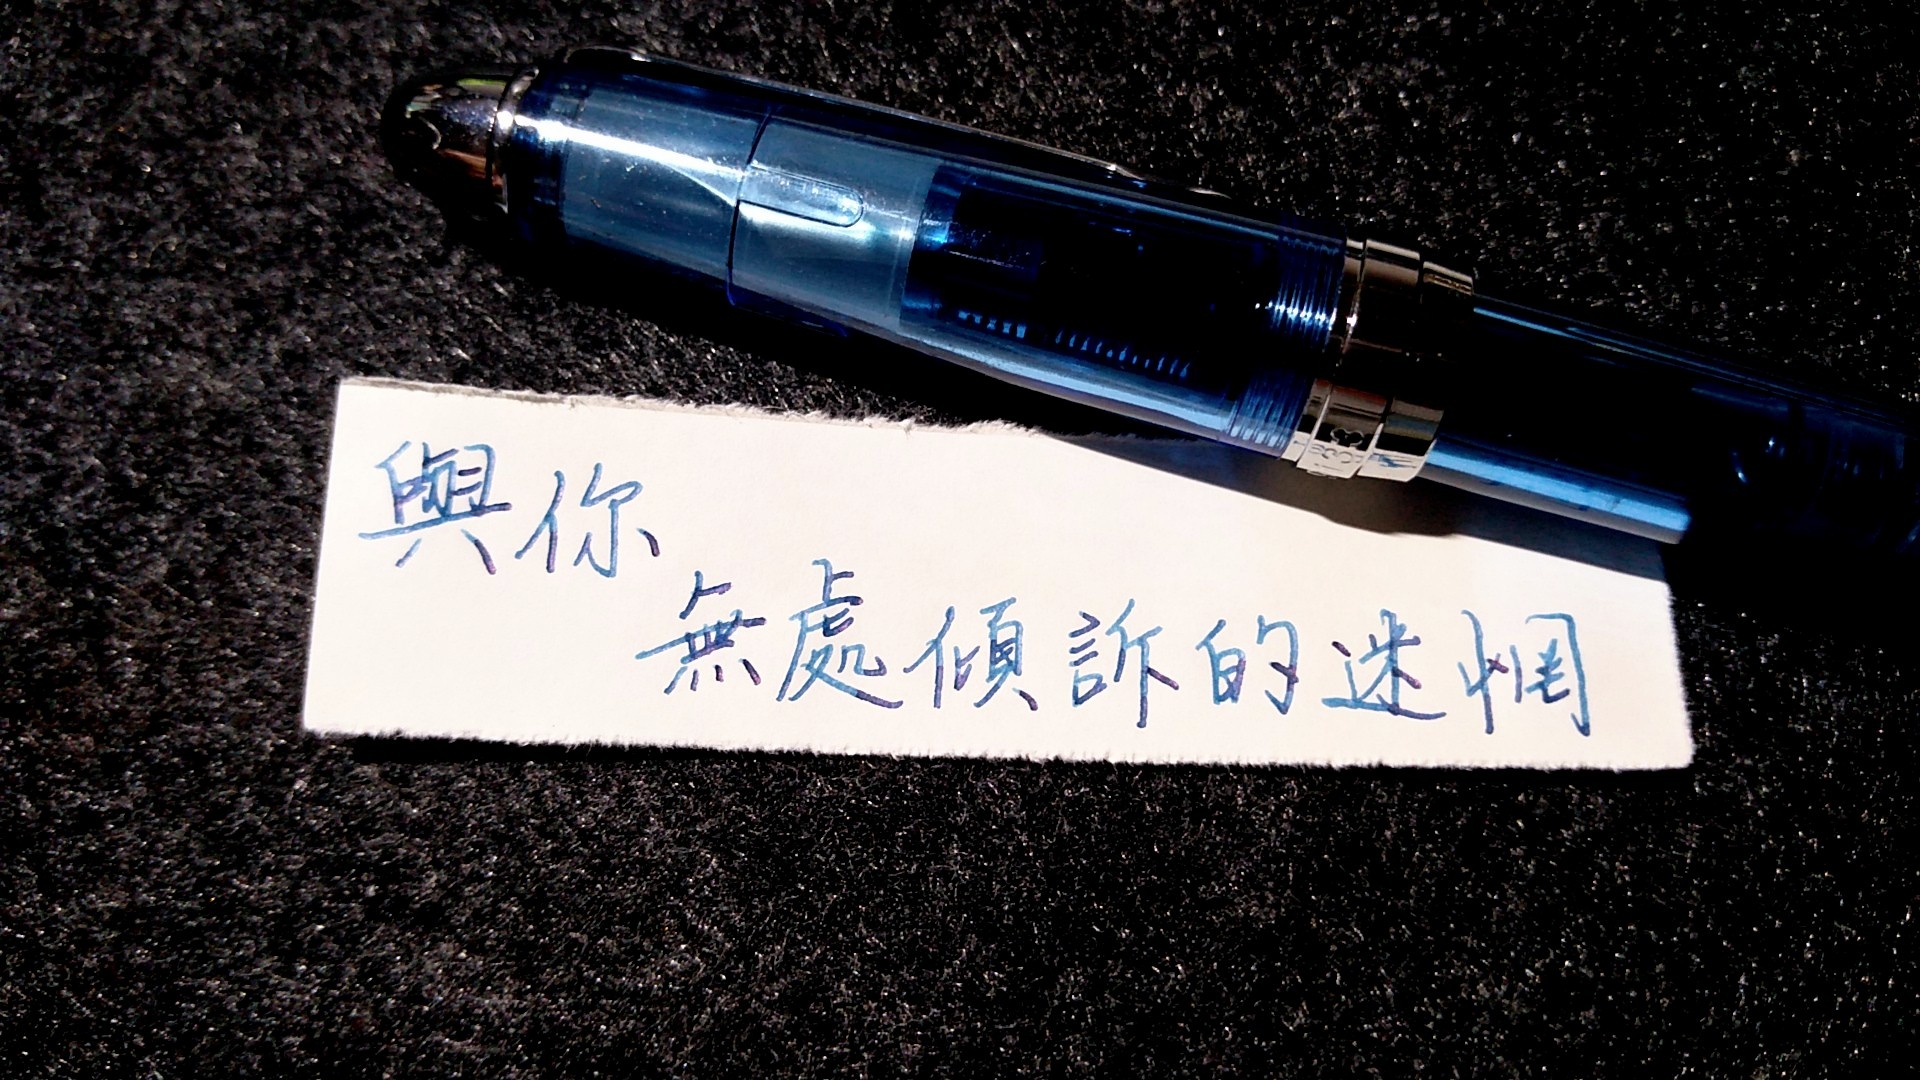 與你
無處傾訴的迷惘